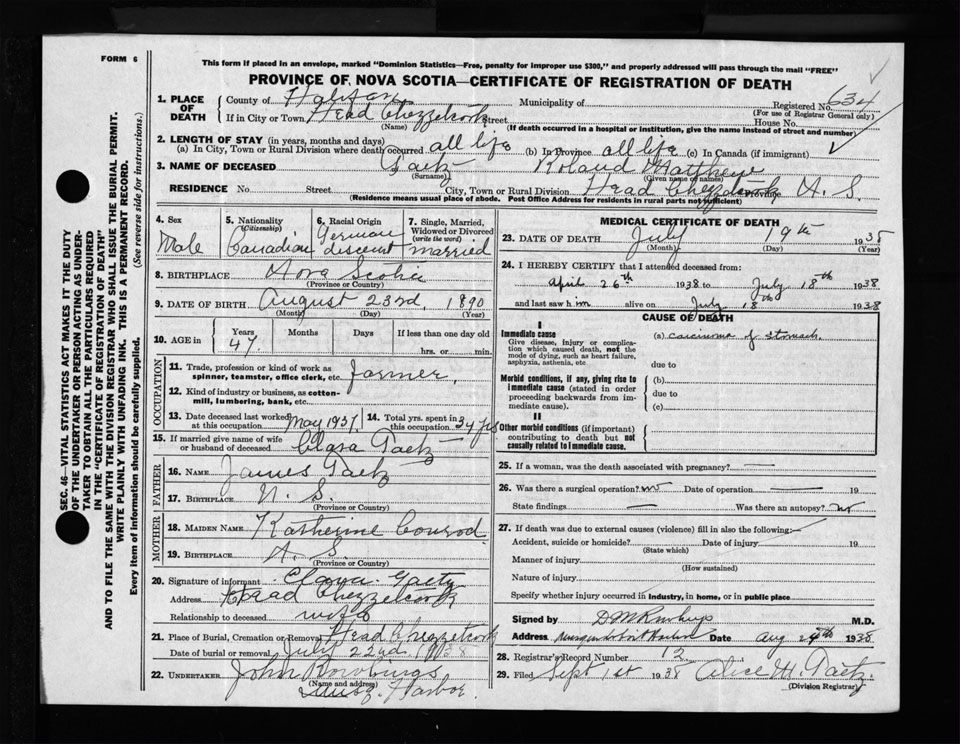 FORM 6
This form if placed in an envelope, marked "Dominion Statistics—Free, penalty for improper use $300," and properly addressed will pass through the mail "FREE"
PROVINCE OF NOVA SCOTIA—CERTIFICATE OF REGISTRATION OF DEATH
SEC. 46—VITAL STATISTICS ACT MAKES IT THE DUTY
OF THE UNDERTAKER OR PERSON ACTING AS UNDER-
TAKER TO OBTAIN ALL THE PARTICULARS REQUIRED
IN THE "CERTIFICATE OF REGISTRATION OF DEATH"
AND TO FILE THE SAME WITH THE DIVISION REGISTRAR WHO SHALL ISSUE THE BURIAL PERMIT.
WRITE PLAINLY WITH UNFADING INK. THIS IS A PERMANENT RECORD.
Every item of information should be carefully supplied. (See reverse side for instructions.)
1. PLACE OF DEATH
County of Halifax Municipality of Registered No. 634
(For use of Registrar General only)
If in City or Town Head Chezzetcook Street House No.
(Name) (If death occurred in a hospital or institution, give the name instead of street and number)
2. LENGTH OF STAY (in years, months and days)
(a) In City, Town or Rural Division where death occurred all life (b) In Province all life (c) In Canada (if immigrant)
3. NAME OF DECEASED Gaetz Roland Matthew
(Surname) (Given name or names)
RESIDENCE No Street City, Town or Rural Division Head Chezzetcook Province N. S.
(Residence means usual place of abode. Post Office Address for residents in rural parts not sufficient)
4. Sex Male
5. Nationality (Citizenship) Canadian
6. Racial Origin German discent
7. Single, Married, Widowed or Divorced (write the word) married
8. BIRTHPLACE Nova Scotia
(Province or Country)
9. DATE OF BIRTH August 23rd, 1890
(Month) (Day) (Year)
10. AGE in Years 47. Months Days If less than one day old
hrs. or min.
OCCUPATION
11. Trade, profession or kind of work as
spinner, teamster, office clerk, etc. farmer,
12. Kind of industry or business, as cotton-
mill, lumbering, bank, etc.
13. Date deceased last worked
at this occupation May 1937.
14. Total yrs. spent in
this occupation 34 yrs
15. If married give name of wife
or husband of deceased Clara Gaetz
FATHER
16. NAME James Gaetz
17. BIRTHPLACE N. S.
(Province or Country)
MOTHER
18. MAIDEN NAME Katherine Conrod
19. BIRTHPLACE N. S.
(Province or Country)
20. Signature of informant Clara Gaetz
Address Head Chezzetcook
Relationship to deceased wife
21. Place of Burial, Cremation or Removal Head Chezzetcook
Date of burial or removal July 22nd, 1938
22. UNDERTAKER John
(Name and address)
Musq. Harbor.
MEDICAL CERTIFICATE OF DEATH
23. DATE OF DEATH July 19th 1938
(Month) (Day) (Year)
24. I HEREBY CERTIFY that I attended deceased from:
April 26th 1938 to July 18th 1938
and last saw him alive on July 18th 1938
CAUSE OF DEATH
I
Immediate cause
Give disease, injury or complica-
tion which caused death, not the
mode of dying, such as heart failure,
asphyxia, asthenia, etc
(a) Carcinoma of stomach
due to
Morbid conditions, if any, giving rise to
immediate cause (stated in order
proceeding backwards from im-
mediate cause).
(b)
due to
(c)
II
Other morbid conditions (if important)
contributing to death but not
causally related to immediate cause.
25. If a woman, was the death associated with pregnancy? —
26. Was there a surgical operation? no Date of operation — 19
State findings — Was there an autopsy? no
27. If death was due to external causes (violence) fill in also the following:
Accident, suicide or homicide? Date of injury 19
(State which)
Manner of injury
(How sustained)
Nature of injury
Specify whether injury occurred in industry, in home, or in public place
Signed by M.D.
Address Musquodoboit Harbor Date Aug 1938
28. Registrar's Record Number 12
29. Filed Sept 1st 1938 Alice H. Gaetz
(Division Registrar)